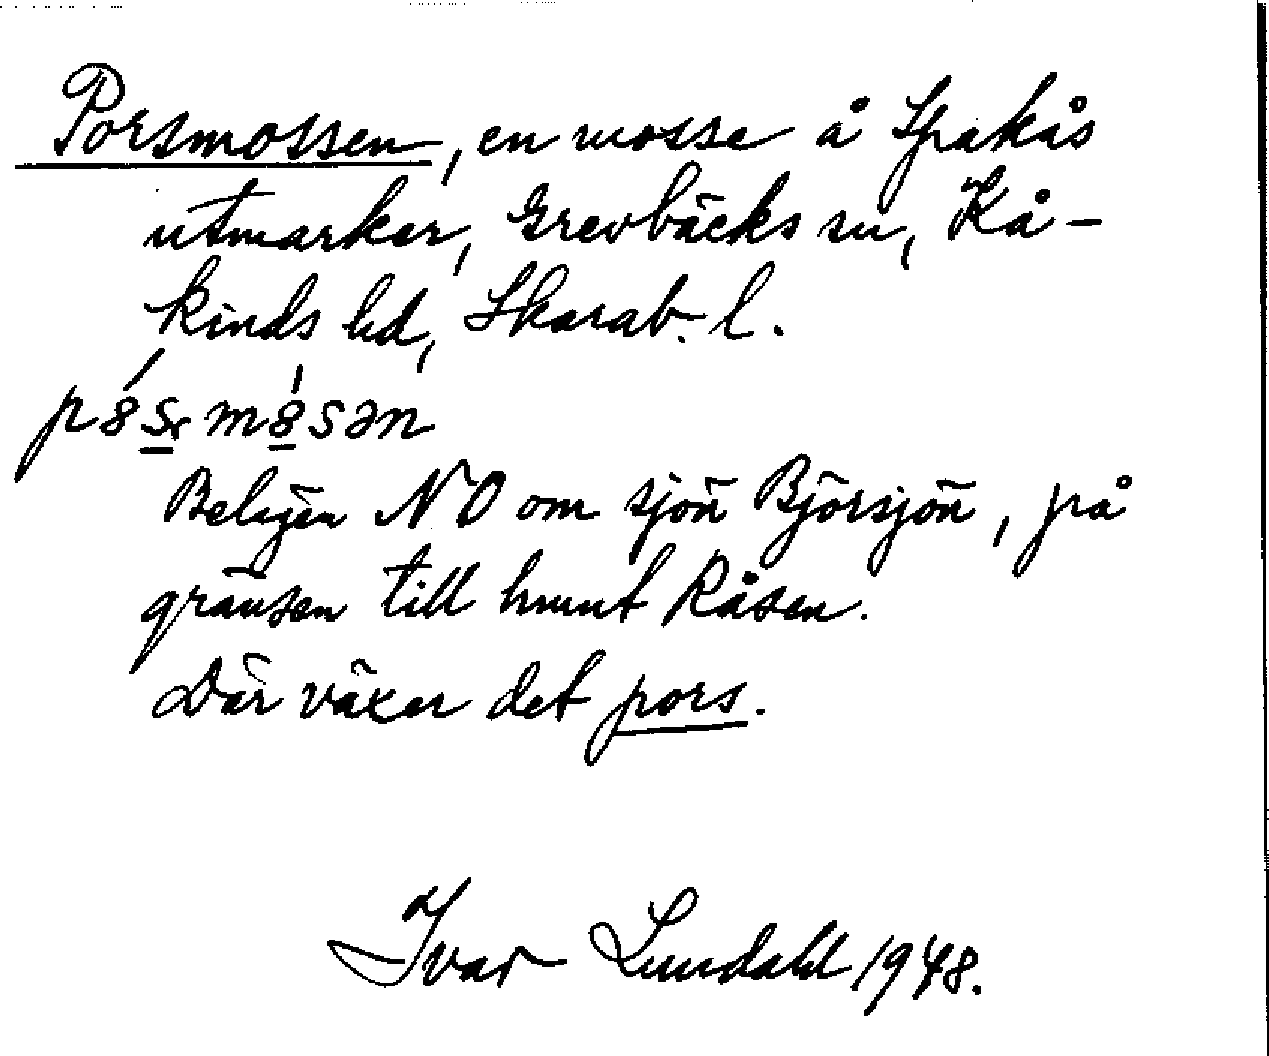 Porsmossen, en mosse å Spakås
utmarker, Grevbäcks sn, Kå-
kinds hd, Skarab. l.
Belägen NO om sjön Björsjön, på
gränsen till hmnt Råsen.
Där växer det pors.
Ivar Lundahl 1948.